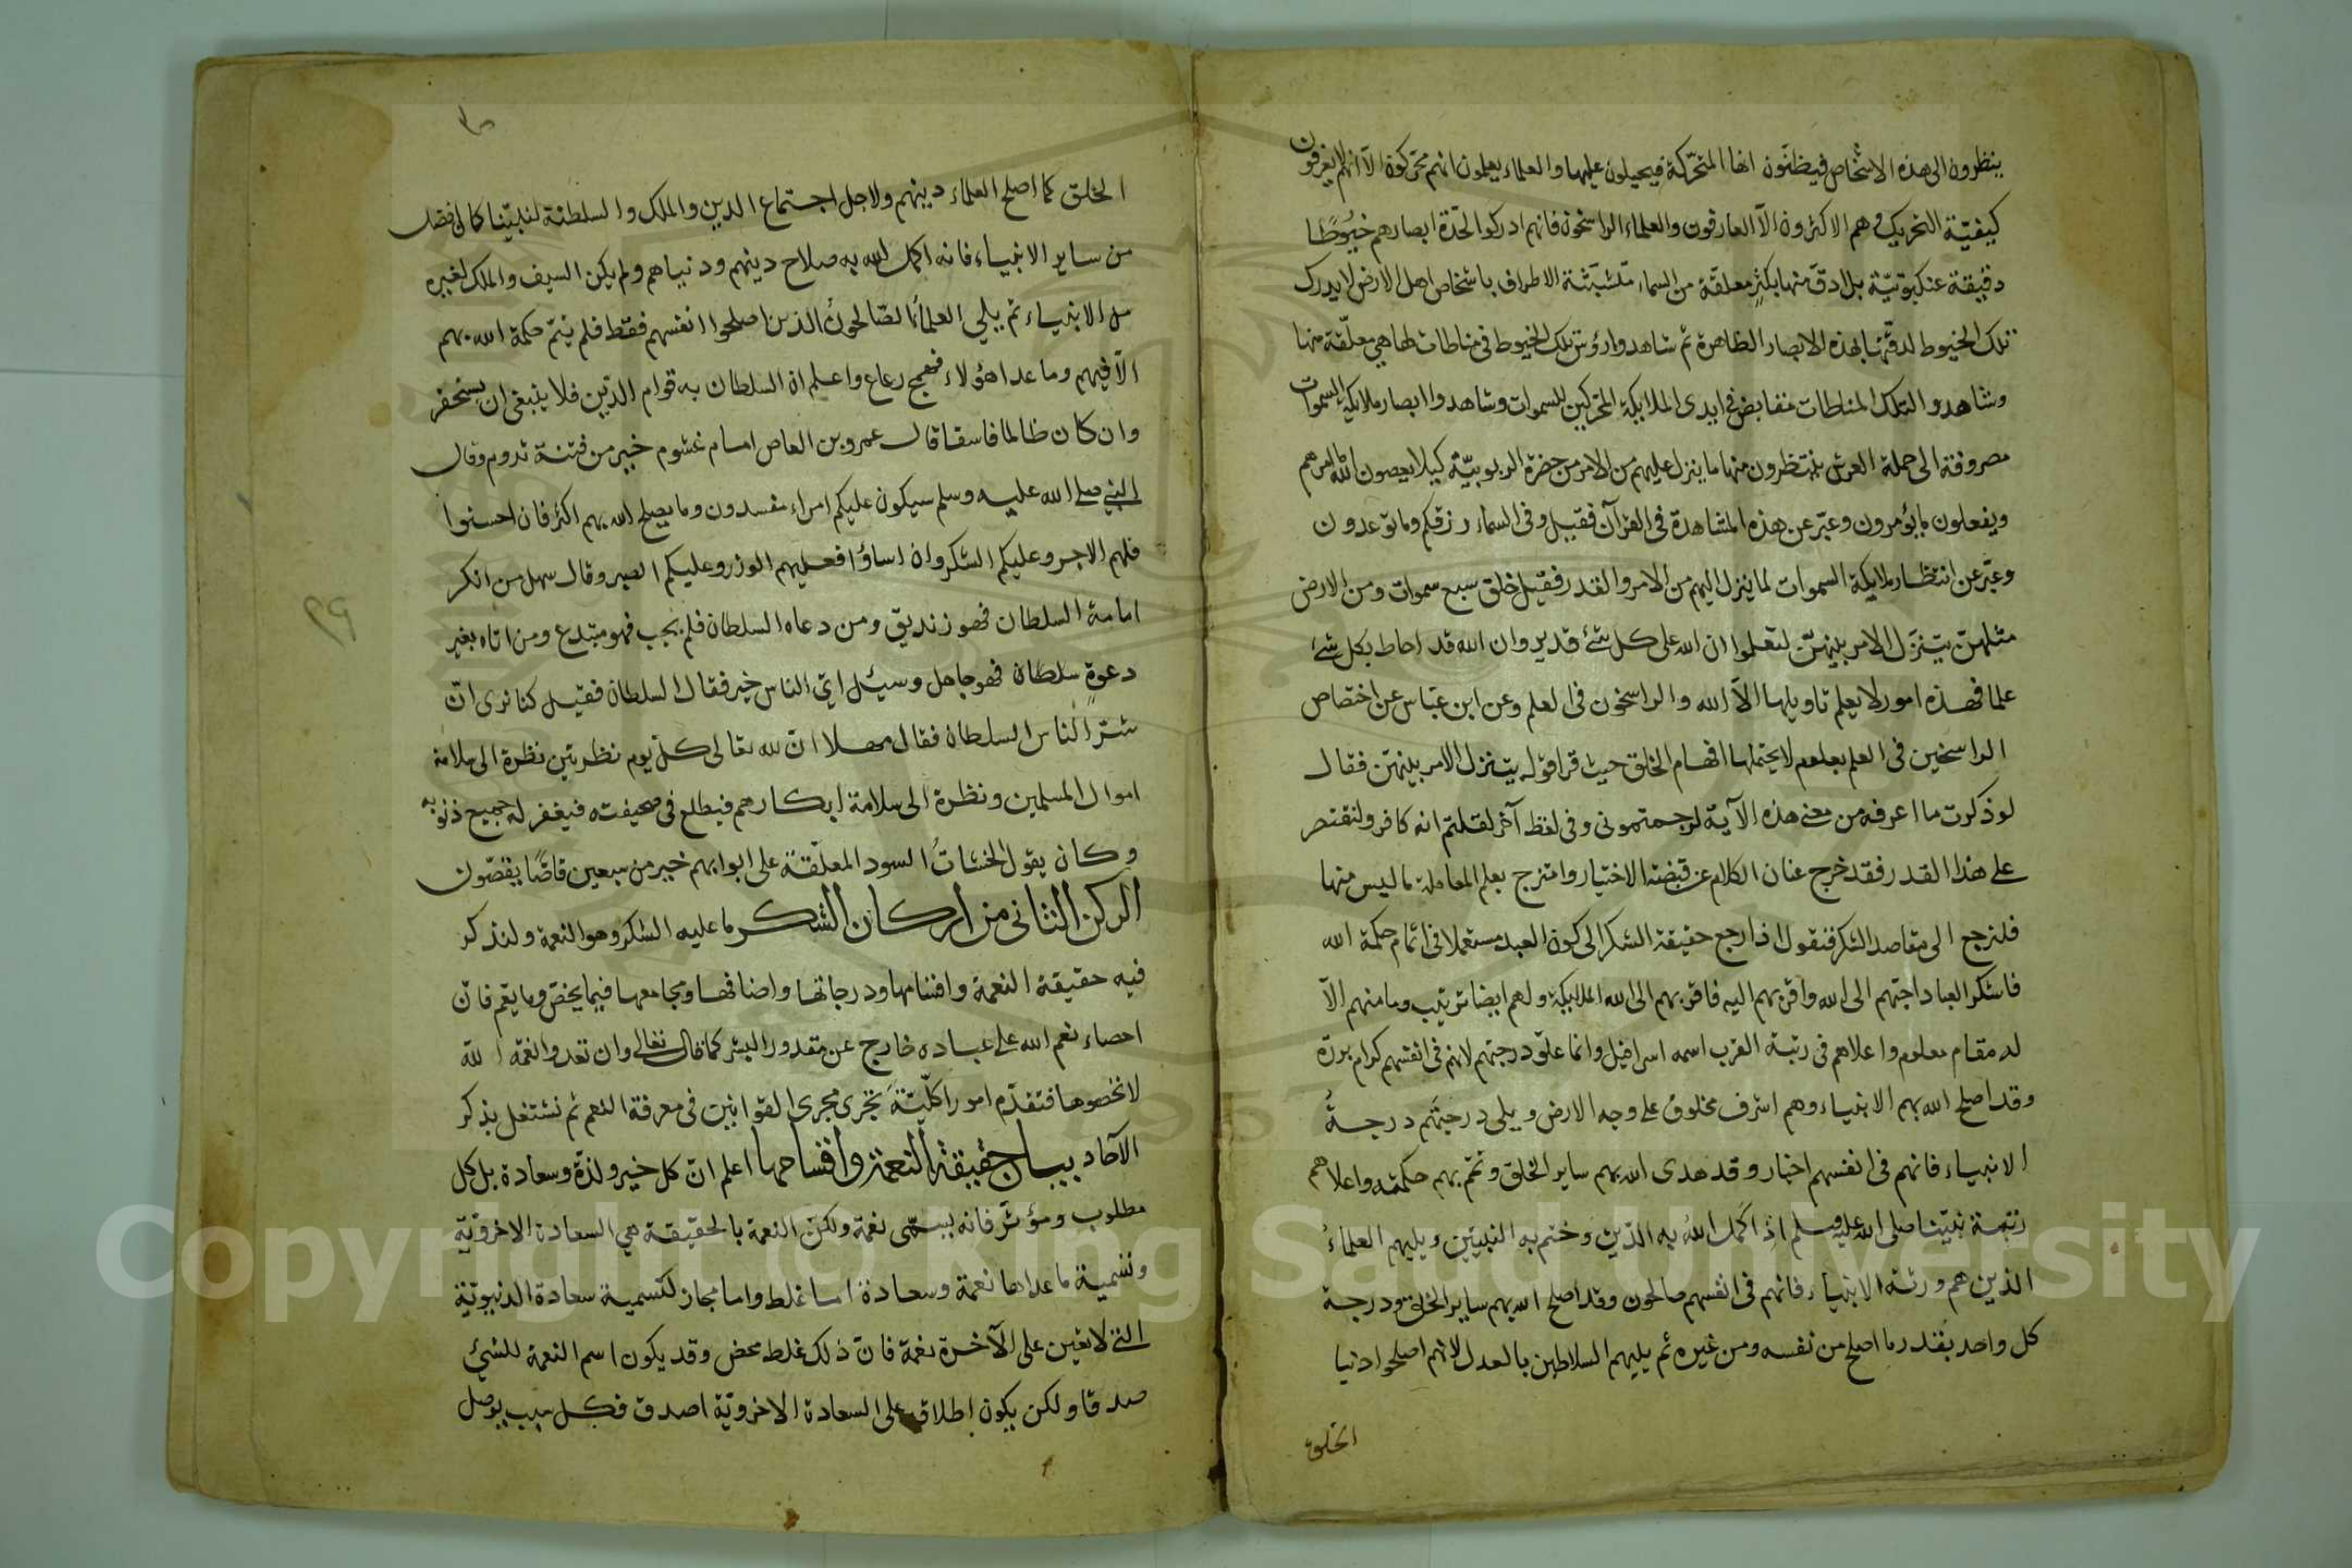 ينظرون الى هذه الاشخاص فيظنون انها المتحركة فيحيلون عليها والعلماء يعلمون انهم محركون الا انهم لا يعرفون
كيفيّة التحريك وهم الاكثرون الّا العارفون والعلماء الراسخون فانهم ادركوا لحدّة ابصارهم خيوطًا
دقيقة عنكبوتيّة بل ادقّ منها بكثير معلقة من السماء متشبّثة الاطراف باشخاص اهل الارض لا يدرك
تلك الخيوط لدقّتها بهذه الابصار الظاهرة ثم شاهدوا رؤس تلك الخيوط فى مناطات لها هي معلّقة منها
وشاهدوا لتلك المناطات مقابض فى ايدى الملايكة المحركين للسموات وشاهدوا ابصار ملايكة السموات
مصروفة الى حملة العرش ينتظرون منها ما ينزل عليهم من الامر من حضرة الربوبيّة كيلا يعصون الله ما امرهم
ويفعلون ما يؤمرون وعبّر عن هذه المشاهدة فى القرآن فقيل وفى السماء رزقكم وما توعدون
وعبّر عن انتظار ملايكة السموات لما ينزل اليهم من الامر والقدر فقيل خلق سبع سموات ومن الارض
مثلهنّ يتنزّل الامر بينهنّ لتعلموا ان الله على كل شئ قدير وان الله قد احاط بكل شئ
علما فهذه امور لا يعلم تاويلها الّا الله والراسخون فى العلم وعن ابن عبّاس عن اختصاص
الراسخين فى العلم بعلوم لا يحتملها افهام الخلق حيث قرا قوله يتنزل الامر بينهنّ فقال
لو ذكرت ما اعرفه من معنى هذه الآية لرجمتمونى وفى لفظ آخر لقلتم انه كافر ولنقتصر
على هذا القدر فقد خرج عنان الكلام عن قبضة الاختيار وامتزج بعلم المعاملة ما ليس منها
فلنرجع الى مقاصد الشكر فنقول اذا رجع حقيقة الشكر الى كون العبد مستعملا فى اتمام حكمة الله
فاشكر العباد احبّهم الى الله واقربهم اليه فاقربهم الى الله الملايكة ولهم ايضا ترتيب وما منهم الّا
له مقام معلوم واعلاهم فى رتبة القرب اسمه اسرافيل وانما علوّ درجتهم لانهم فى انفسهم كرام بررة
وقد اصلح الله بهم الانبياء وهم اشرف مخلوق على وجه الارض ويلى درجتهم درجة
الانبياء فانهم فى انفسهم اخيار وقد هدى الله بهم ساير الخلق وتمّم بهم حكمته واعلاهم
رتبة نبيّنا صلى الله عليه وسلم اذ اكمل الله به الدّين وختم به النبيّين ويليهم العلماءُ
الذين هم ورثة الانبياء فانهم فى انفسهم صالحون وقد اصلح الله بهم ساير الخلق ودرجة
كل واحد بقدر ما اصلح من نفسه ومن غيره ثم يليهم السلاطين بالعدل لانهم اصلحوا دنيا
الخلق
الخلق كما اصلح العلماء دينهم ولاجل اجتماع الدين والملك والسلطنة لنبيّنا كان افضل
من ساير الانبياء فانه اكمل الله به صلاح دينهم ودنياهم ولم يكن السيف والملك لغيره
من الانبياء ثم يلي العلماءَ الصّالحونُ الذين اصلحوا انفسهم فقط فلم يتمّ حكمة الله بهم
الّا فيهم وما عدا هؤلاء فهمج رعاع واعلم ان السلطان به قوام الدّين فلا ينبغى ان يستحقر
وان كان ظالما فاسقا قال عمرو بن العاص امام غشوم خير من فتنة تدوم وقال
النبي صلى الله عليه وسلم سيكون عليكم امراء مفسدون وما يصلح الله بهم اكثر فان احسنوا
فلهم الاجر وعليكم الشكر وان اساؤا فعليهم الوزر وعليكم الصبر وقال سهل من انكر
امامة السلطان فهو زنديق ومن دعاه السلطان فلم يجب فهو مبتدع ومن اتاه بغير
دعوة سلطان فهو جاهل وسئل ايّ الناس خير فقال السلطان فقيل كنا نرى انّ
شرّ الناس السلطان فقال مهلا انّ لله تعالى كلّ يوم نظرتين نظرة الى سلامة
اموال المسلمين ونظرة الى سلامة ابكارهم فيطلع فى صحيفته فيغفر له جميع ذنوبه
وكان يقول الخشباتُ السود المعلّقة على ابوابهم خير من سبعين قاصًّا يقصّون
الركن الثانى من اركان الشكر ما عليه الشكر وهو النعمة ولنذكر
فيه حقيقة النعمة واقسامها ودرجاتها واصنافها ومجامعها فيما يخصّ وما يعم فانّ
احصاء نعم الله على عباده خارج عن مقدور البشر كما قال تعالى وان تعدوا نعمة الله
لا تحصوها فنقدّم امورا كليّة تجرى مجرى القوانين فى معرفة النعم ثم نشتغل بذكر
الآحاد بيان حقيقة النعمة واقسامها اعلم انّ كل خير ولذّة وسعادة بل كل
مطلوب ومؤثر فانه يسمّى نعمة ولكن النعمة بالحقيقة هي السعادة الاخرويّة
وتسمية ما عداها نعمة وسعادة اما غلط واما مجاز كتسمية سعادة الدنيويّة
التي لا تعين على الآخرة نعمة فانّ ذلك غلط محض وقد يكون اسم النعمة للشئ
صدقا ولكن يكون اطلاقه على السعادة الاخرويّة اصدق فكل سبب يوصل
Copyright © King Saud University